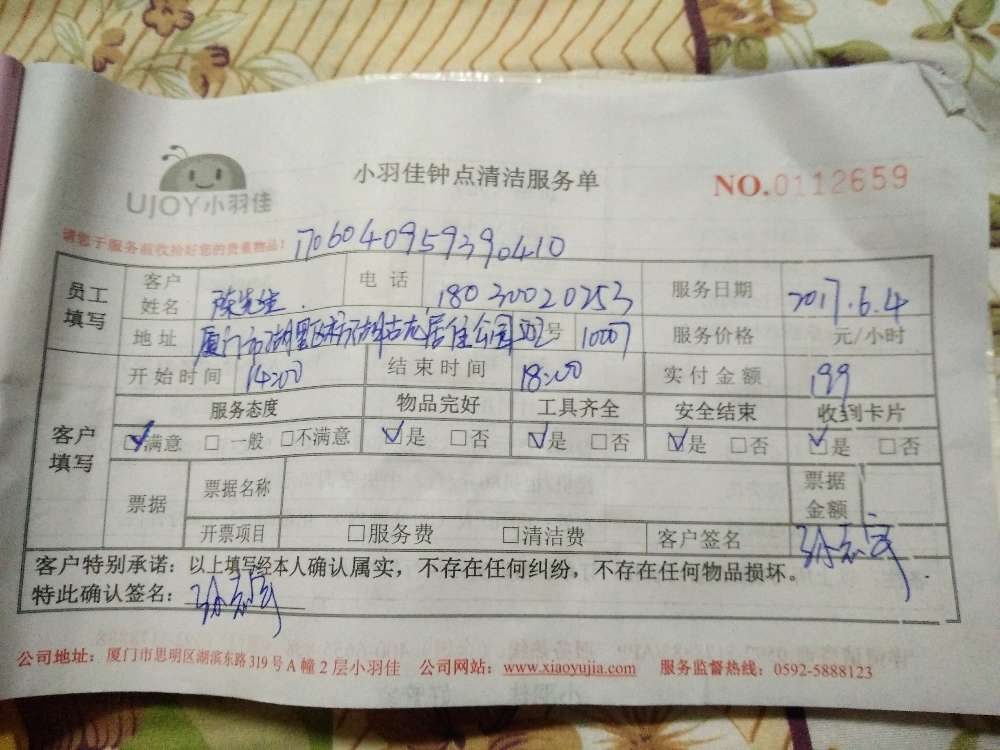 UJOY小羽佳
小羽佳钟点清洁服务单
NO.0112659
请您于服务前收拾好您的贵重物品!
1706040959390410
员工填写 客户姓名 陈先生 电话 18030020253 服务日期 2017.6.4
地址 厦门市湖里区枋湖古龙居住公园502号 10007 服务价格 元/小时
客户填写 开始时间 14:00 结束时间 18:00 实付金额 199
服务态度 物品完好 工具齐全 安全结束 收到卡片
☑满意 □一般 □不满意 ☑是 □否 ☑是 □否 ☑是 □否 ☑是 □否
票据 票据名称 票据金额
开票项目 □服务费 □清洁费 客户签名
客户特别承诺：以上填写经本人确认属实，不存在任何纠纷，不存在任何物品损坏。
特此确认签名：
公司地址：厦门市思明区湖滨东路319号A幢2层小羽佳 公司网站：www.xiaoyujia.com 服务监督热线：0592-5888123